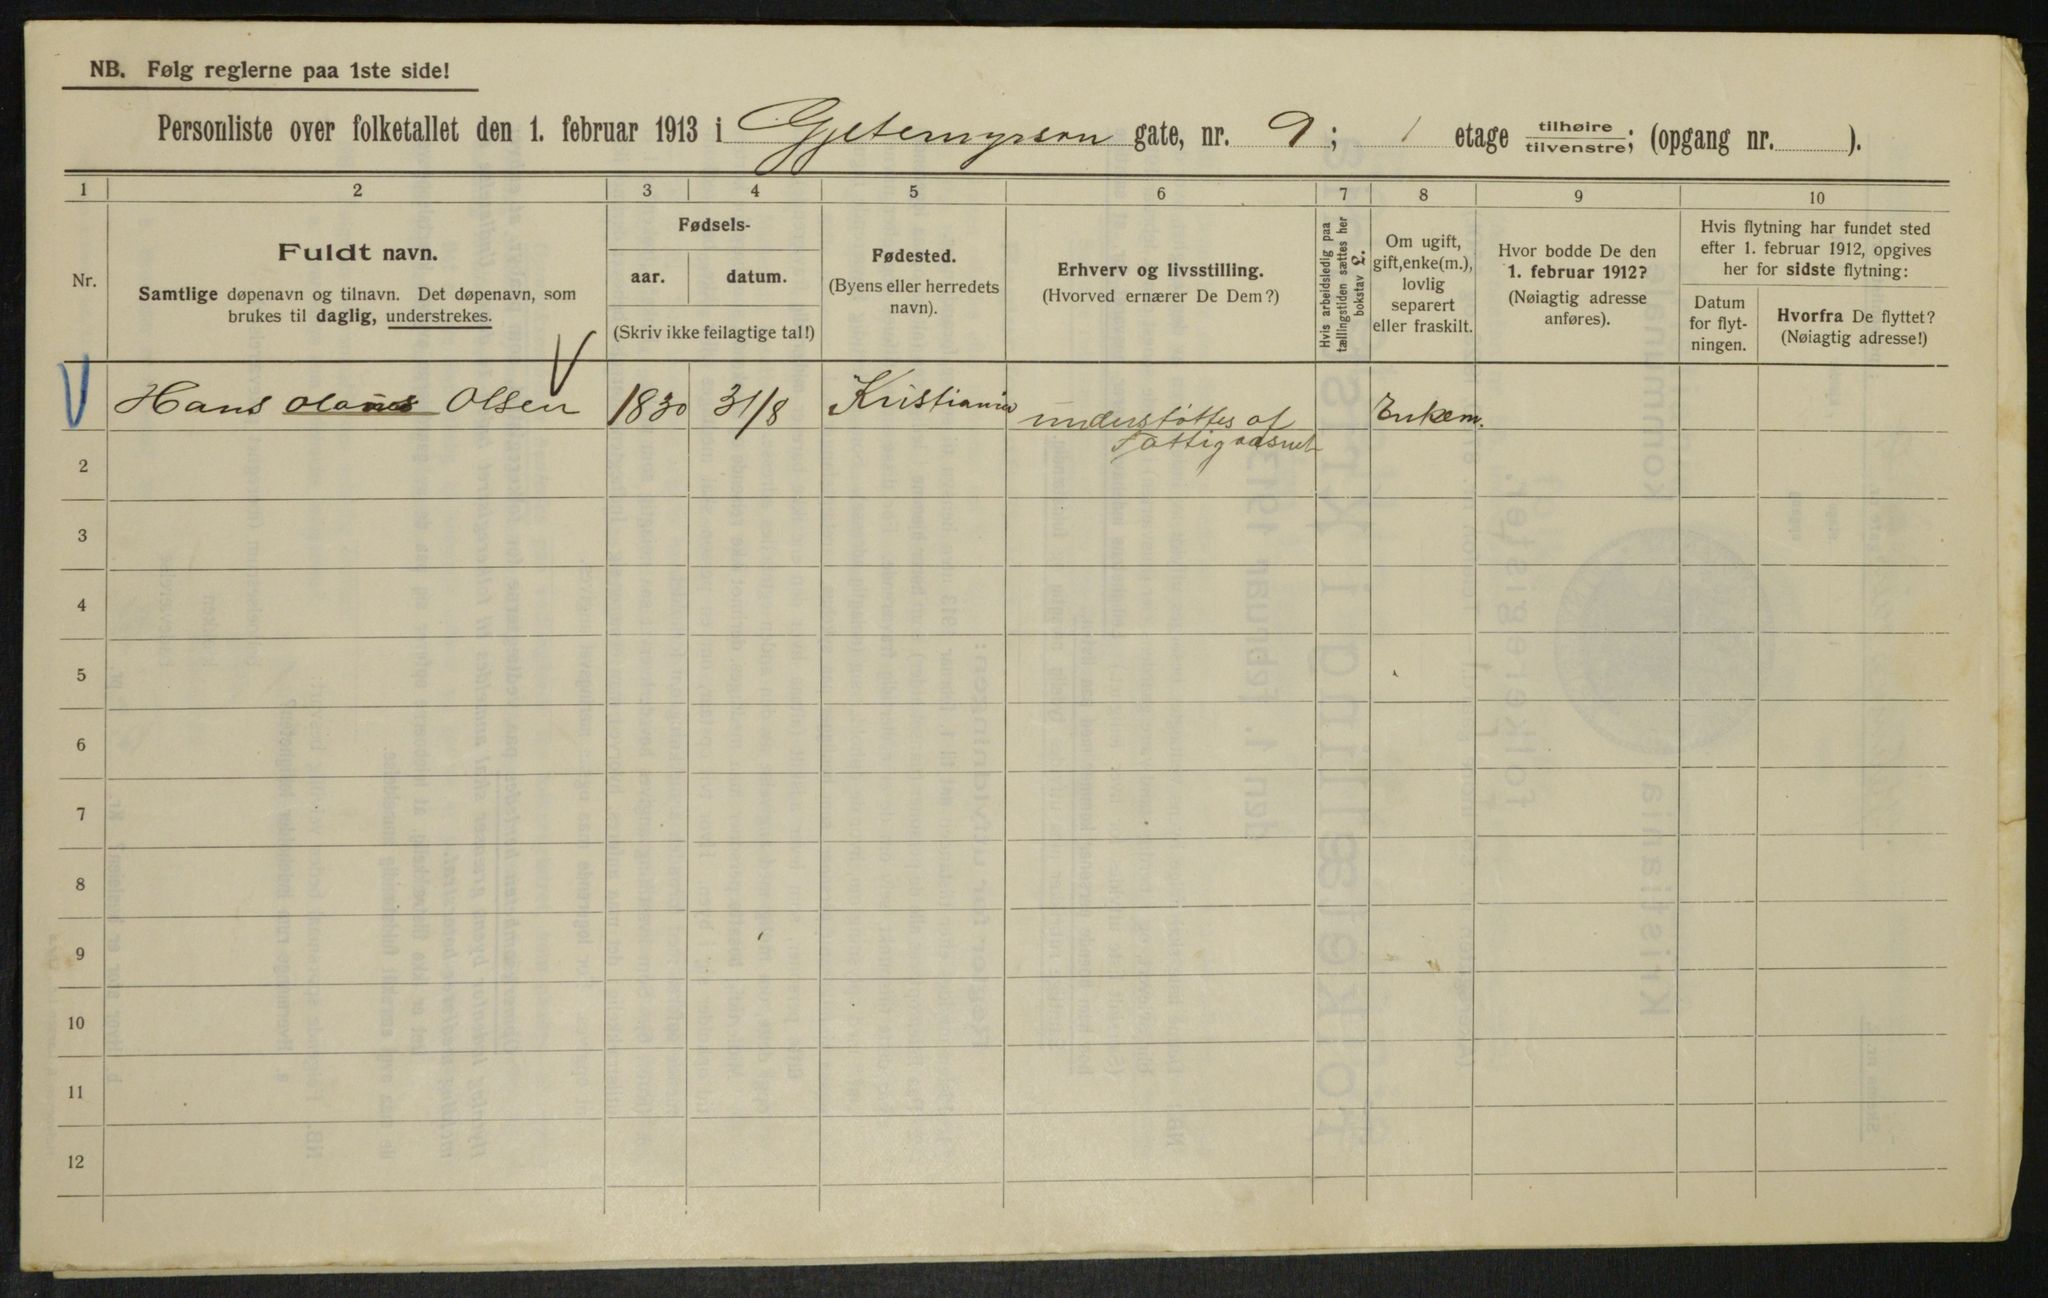 NB. Følg reglerne paa 1ste side!
Personliste over folketallet den 1. februar 1913 i Gjetemyrsvn gate, nr. 9; 1 etage tilhøire tilvenstre; (opgang nr. ).
1 2 3 4 5 6 7 8 9 10
Nr.
Fuldt navn.
Samtlige døpenavn og tilnavn. Det døpenavn, som
brukes til daglig, understrekes.
Fødsels-
aar. datum.
(Skriv ikke feilagtige tal!)
Fødested.
(Byens eller herredets
navn).
Erhverv og livsstilling.
(Hvorved ernærer De Dem?)
Hvis arbeidsledig paa
tællingstiden sættes her
bokstav L.
Om ugift,
gift, enke(m.),
lovlig
separert
eller fraskilt.
Hvor bodde De den
1. februar 1912?
(Nøiagtig adresse
anføres).
Hvis flytning har fundet sted
efter 1. februar 1912, opgives
her for sidste flytning:
Datum
for flyt-
ningen.
Hvorfra De flyttet?
(Nøiagtig adresse!)
Hans Olsen 1830 31/8 Kristiania understøttes af Enkem.
2
3
4
5
6
7
8
9
10
11
12